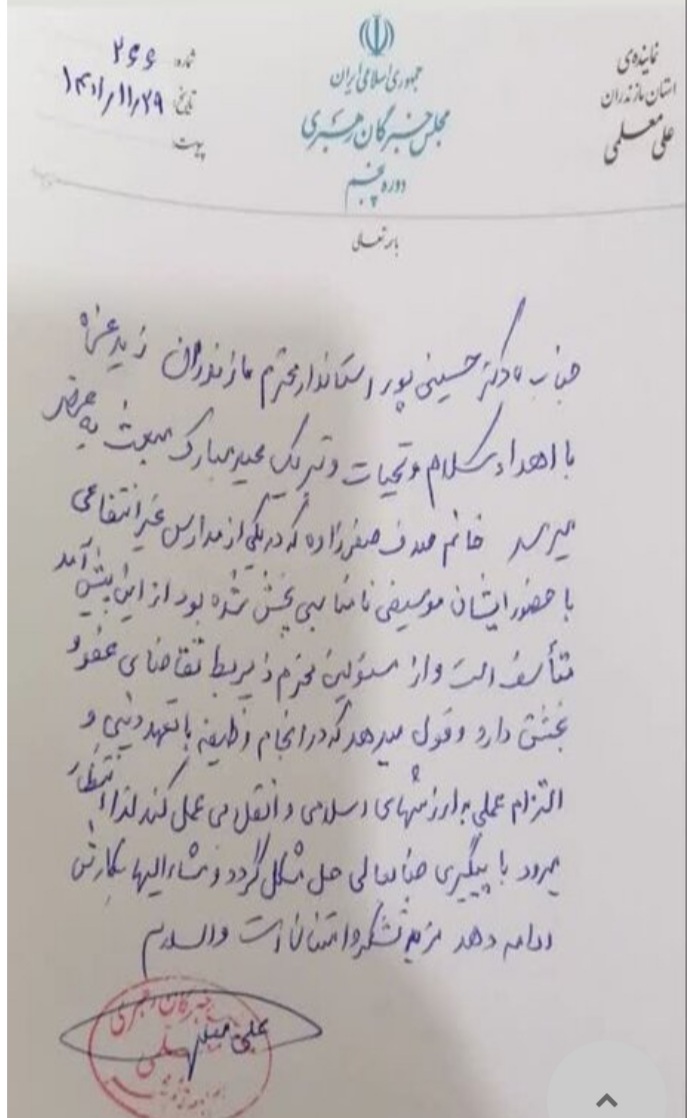 نماینده‌ی
استان مازندران
علی معلمی
جمهوری اسلامی ایران
مجلس خبرگان رهبری
دوره پنجم
شماره: ۲۶۶
تاریخ: ۱۴۰۱/۱۱/۲۹
پیوست:
باسمه تعالی
جناب دکتر حسینی پور استاندار محترم مازندران زید عزه
با اهداء سلام و تحیات و تبریک عید مبارک مبعث به عرض
میرسد خانم صدف صفرزاده که در یکی از مدارس غیر انتفاعی
با حضور ایشان موسیقی نامناسبی پخش شده بود از این پیش آمد
متأسف است و از مسئولین محترم ذیربط تقاضای عفو و
بخشش دارد و قول میدهد که در انجام وظیفه با تعهد دینی و
التزام عملی به ارزشهای اسلامی و انقلابی عمل کند لذا انتظار
میرود با پیگیری جنابعالی حل مشکل گردد و مشاءالیها بکارش
ادامه دهد مزید تشکر و امتنان است والسلام
علی معلمی